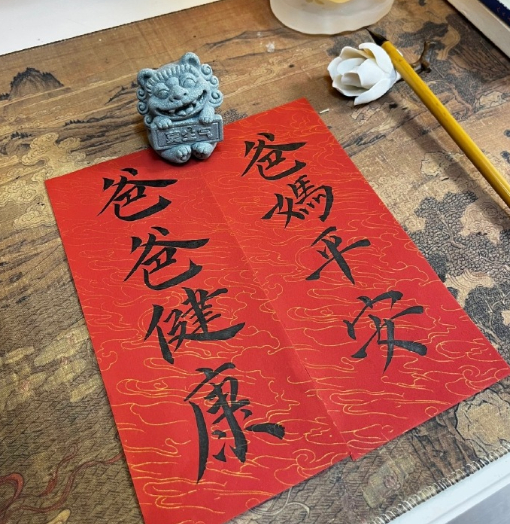 爸媽平安
爸爸健康